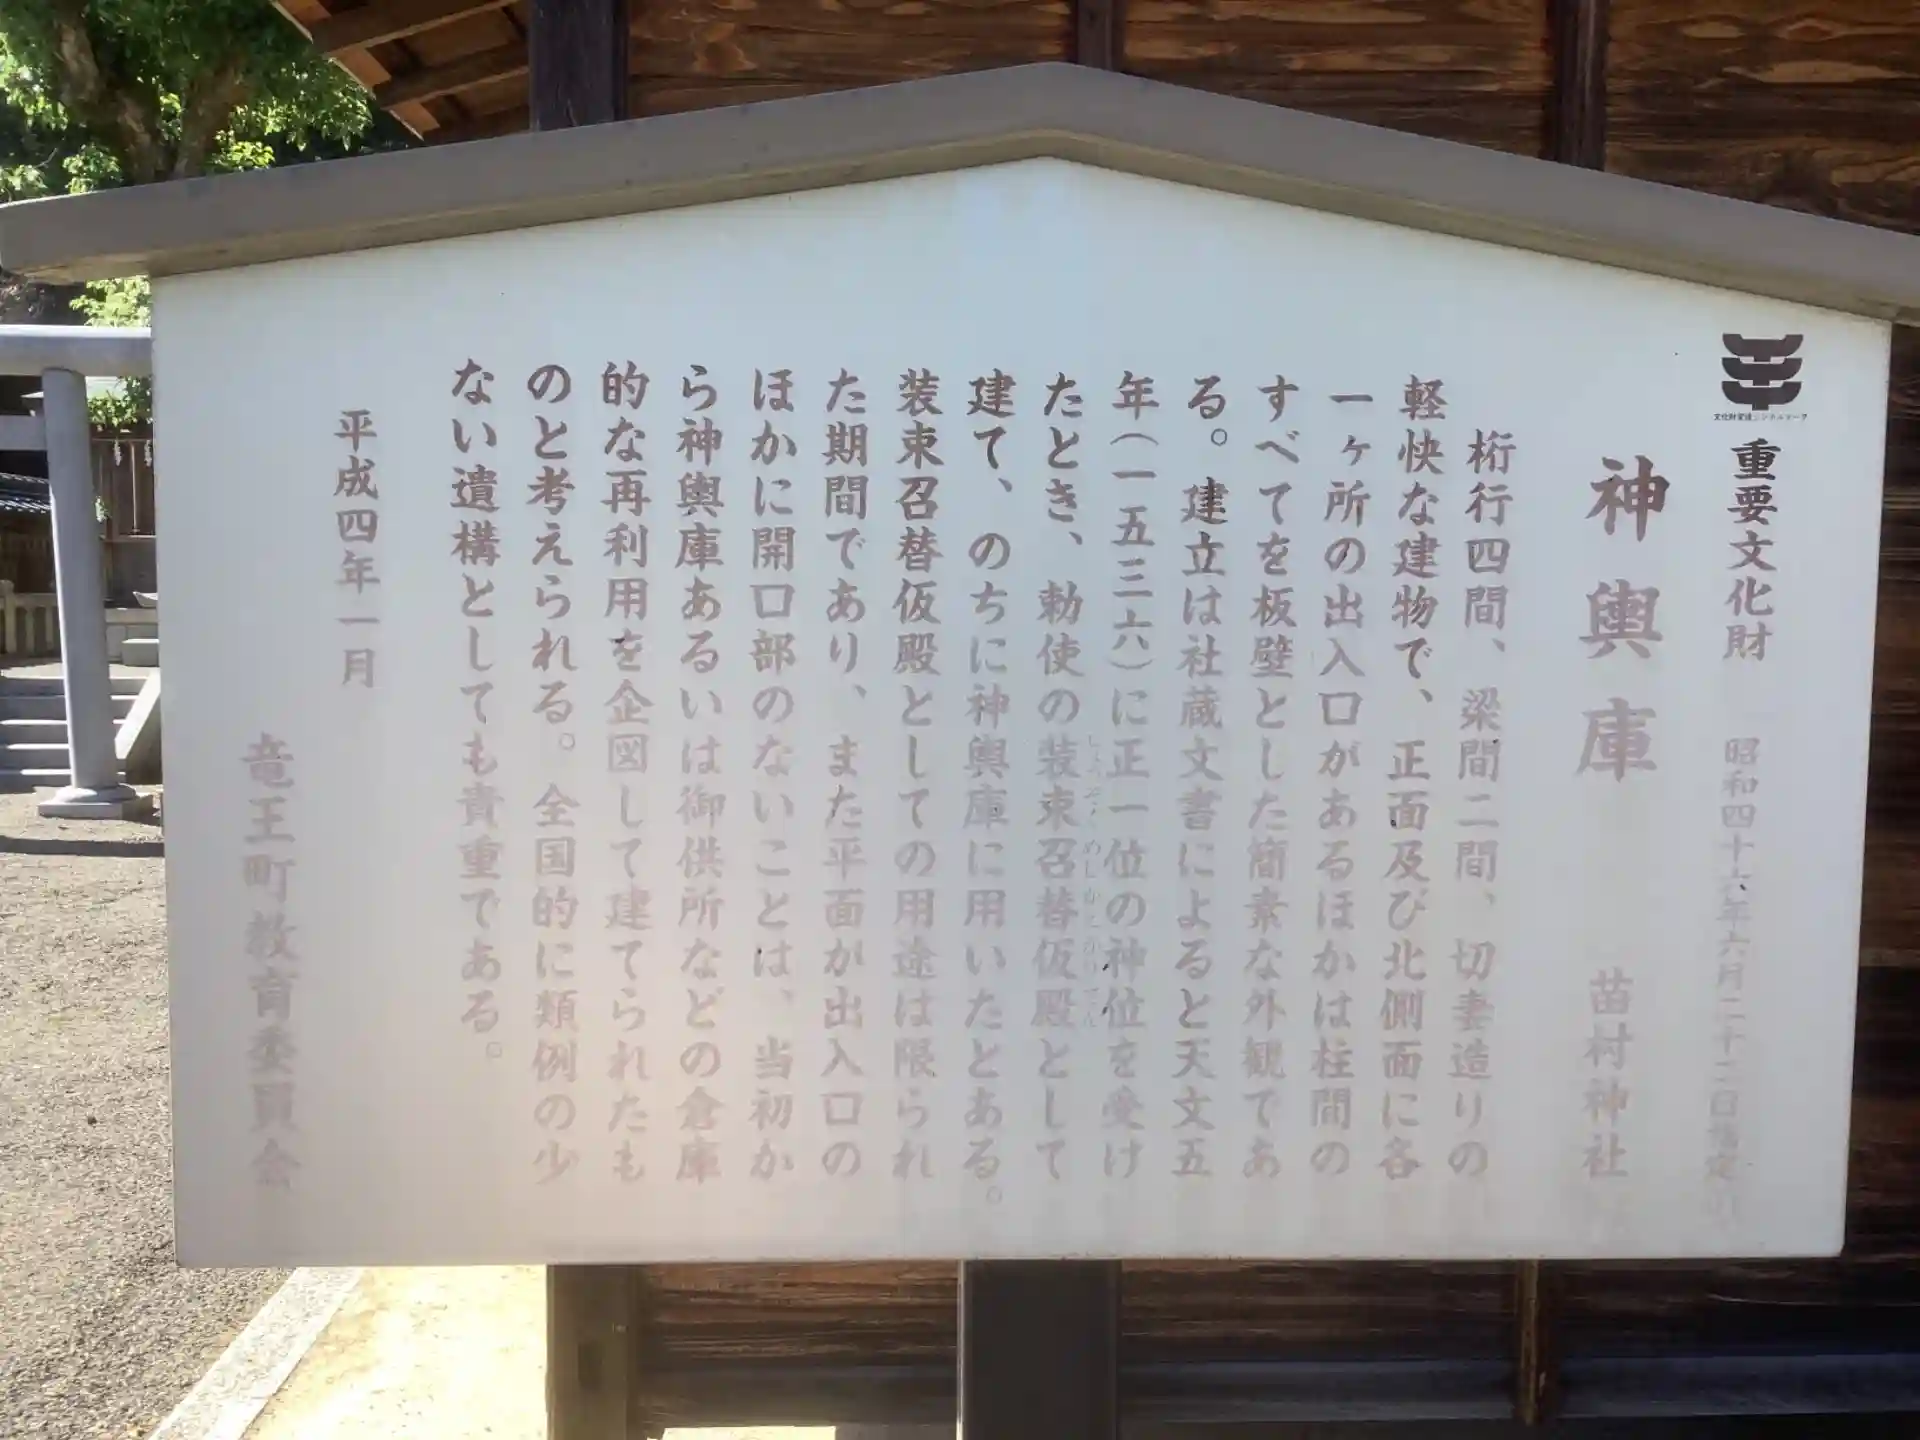 文化財愛護シンボルマーク
重要文化財 昭和四十六年六月二十二日指定
神輿庫 苗村神社
桁行四間、梁間二間、切妻造りの
軽快な建物で、正面及び北側面に各
一ヶ所の出入口があるほかは柱間の
すべてを板壁とした簡素な外観であ
る。建立は社蔵文書によると天文五
年(一五三六)に正一位の神位を受け
たとき、勅使の装束召替仮殿として
しょうぞくめしかえかりでん
建て、のちに神輿庫に用いたとある。
装束召替仮殿としての用途は限られ
た期間であり、また平面が出入口の
ほかに開口部のないことは、当初か
ら神輿庫あるいは御供所などの倉庫
的な再利用を企図して建てられたも
のと考えられる。全国的に類例の少
ない遺構としても貴重である。
平成四年一月
竜王町教育委員会